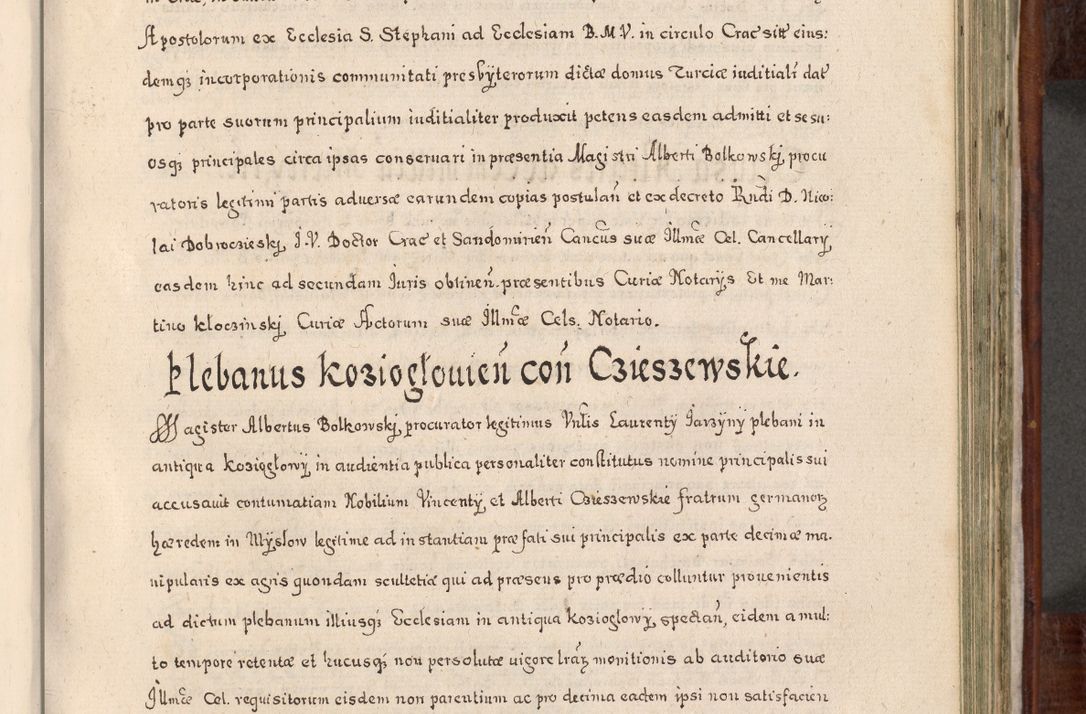 Apostolorum ex Ecclesia S. Stephani ad Ecclesiam B. M V. in circulo Crac̄ sitt̄ eius:
demq₃ incorporationis communitati presbÿterorum dictæ domus Turciæ iuditialr̄ dat̄
pro parte suorum principalium iuditialiter produxit petens easdem admitti et se su:
osq₃ principales circa ipsas conseruari in præsentia Magistri Alberti Bolkowskj, procu
ratoris legitimi partis aduersæ earundem copias postulan̄ et ex decreto Rndi D. Nico:
lai Dobroczieskj, J. V. Doctor Crac̄ et Sandomirien̄ Cancūs suæ Illmæ Cel. Cancellarÿ
easdem hinc ad secundam Iuris obtinen̄. præsentibus Curiæ Notarÿs Et me Mar:
tino kłoczinskj, Curiæ Actorum suæ Illmæ Cels. Notario.
Plebanus koziogłouien̄ con̄ Czieszewskie.
Magister Albertus Bolkowskj, procurator legitimus Vnlis Laurentÿ Jarzÿnÿ plebani in
antiqua koziogłowÿ in audientia publica personaliter constitutus nomine principalis sui
accusauit contumatiam Nobilium Vincentÿ et Alberti Czieszewskie fratrum germanorꝝ
hæredem in Mÿsłow legitime ad instantiam præfati sui principalis ex parte decimæ ma.
nipularis ex agris quondam scultetiæ qui ad præsens pro prædio colluntur prouenientis
ad dictum plebanum illiusq₃ Ecclesiam in antiqua koziogłowÿ, spectan̄, eidem a mul:
to tempore retentæ et hucusq₃ non persolutæ uigore lrarꝝ monitionis ab auditorio suæ
Illmæ Cel. requisitorum eisdem non parentium ac pro decima eadem ipsi non satisfacien